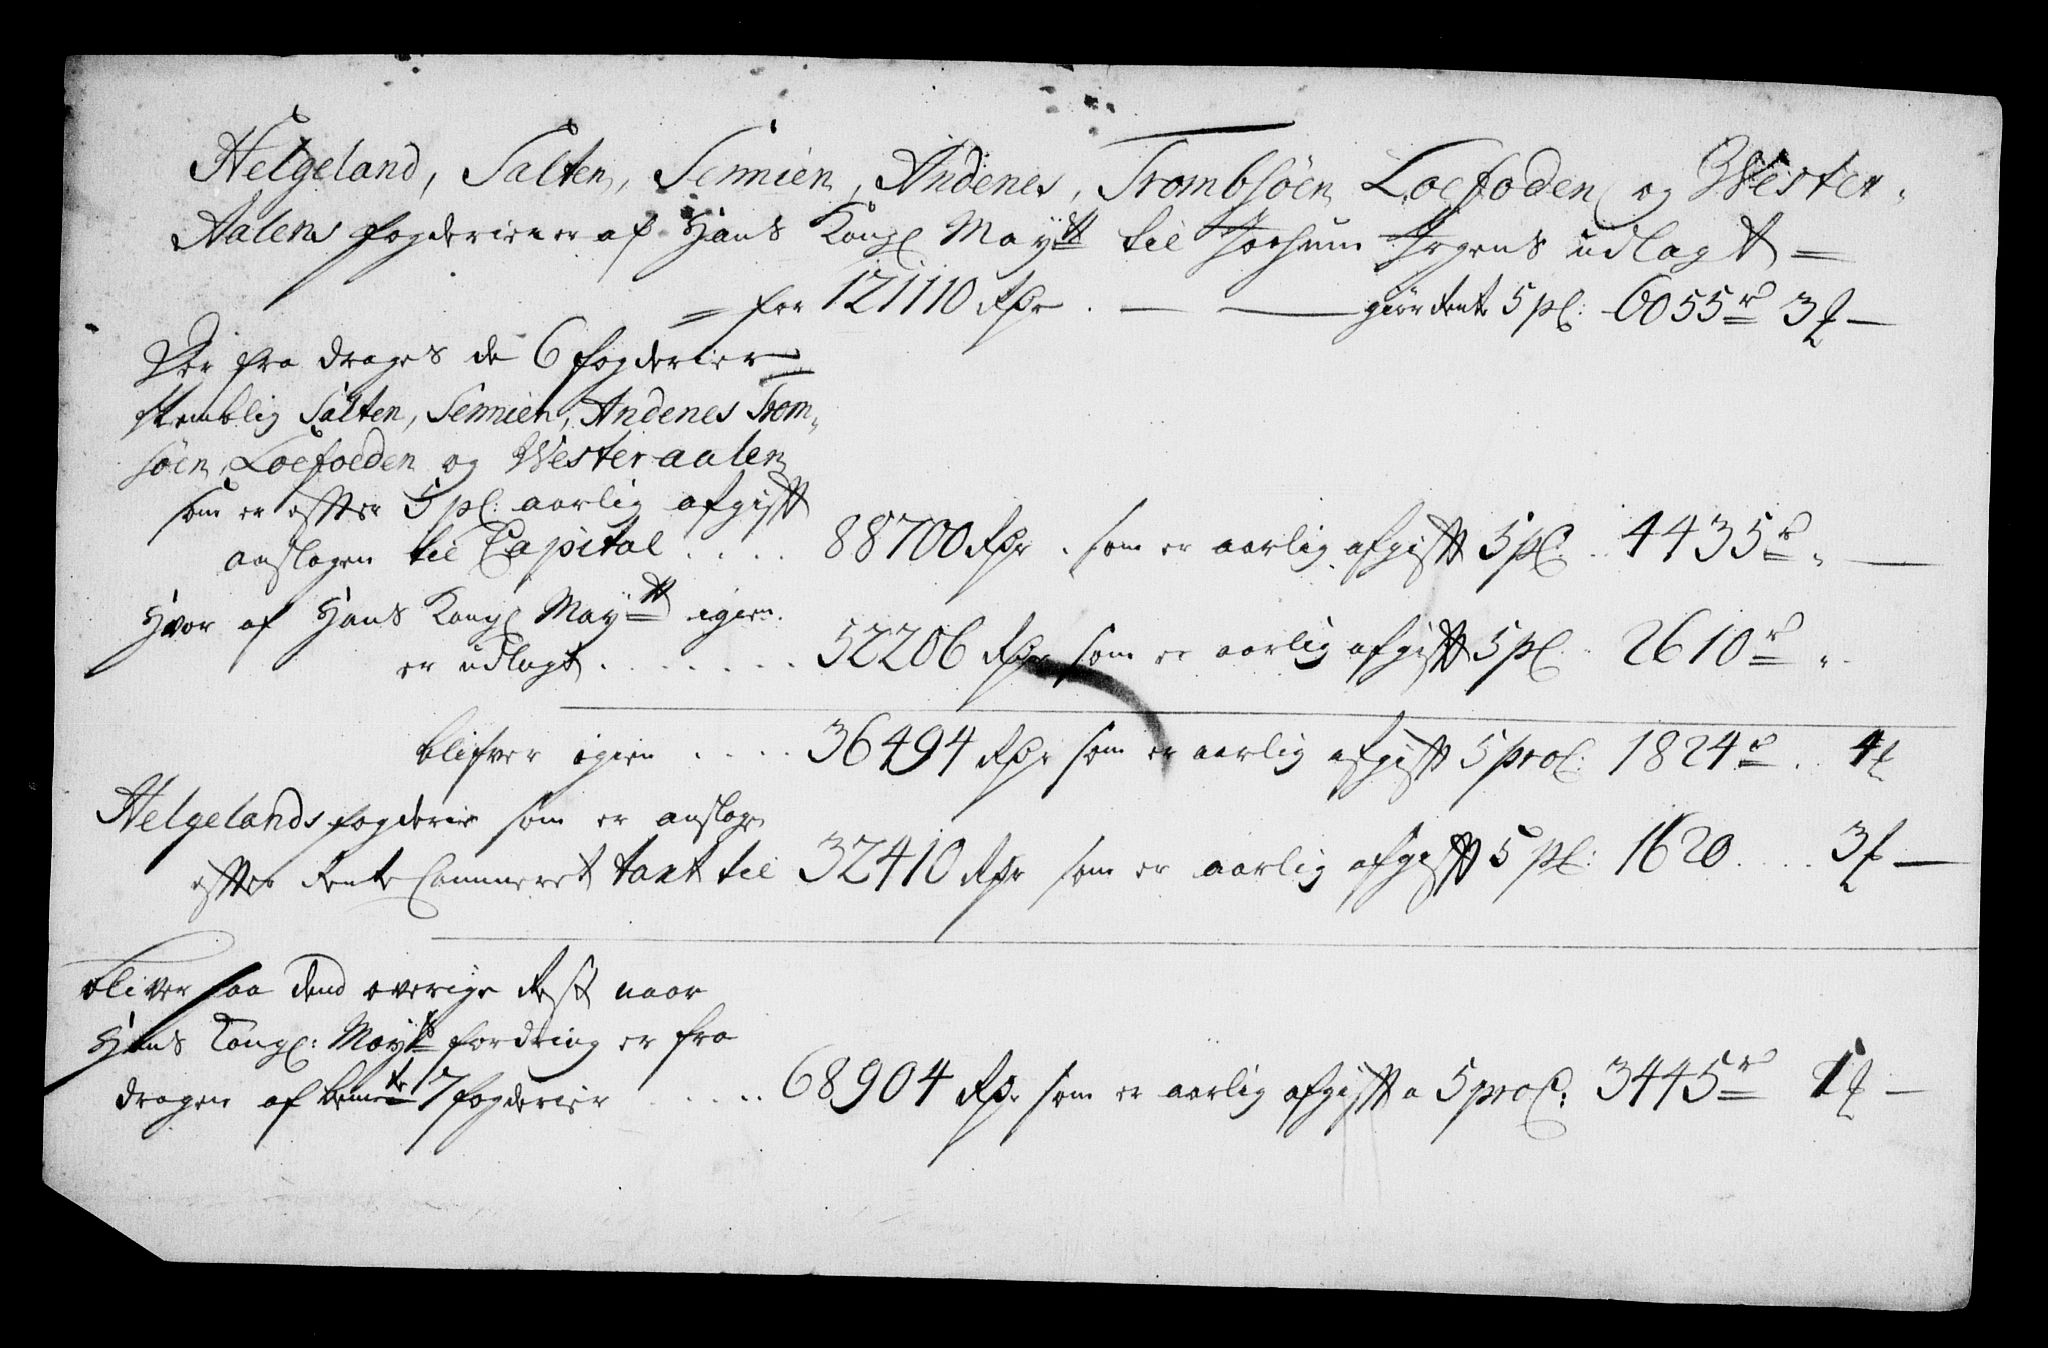 Helgeland, Salten, Sennien, Andenes, Trombsöen Loefoden og Wester-
Aalens fogderier er af Hans Kongl May:tt til Jochum Jrgens udlagt =
= for 121110 Rdr. — — giör Rente 5 pC: 6055 r 3 ₰ —
Der fra drages de 6 fogderier
Nemblig Salten, Sennien, Andenes Trom-
söen, Loefoeden og Westeraalen
som er effter 5 pC: aarlig afgifft
anslagen til Capital .... 88700 Rdr. som er aarlig afgifft 5 pC. 4435 r „ —
Hvor af Hans Kongl May:tt igien
er udlagt ....... 52206 Rdr som er aarlig afgifft 5 pC. 2610 r „
blifver igien .... 36494 Rdr som er aarlig afgifft 5 proC: 1824 r . 4 ₰
Helgelands fogderie som er anslagen
effter Rente Cammeret taxt til 32410 Rdr som er aarlig afgifft 5 pC: 1620 .... 3 ₰ —
bliver saa dend överige Rest naar
Hans Kongl: May:ts fordring er fra
dragen af bem:te 7 fogderier ..... 68904 Rdr som er aarlig afgifft a 5 proC: 3445 r 1 ₰ —